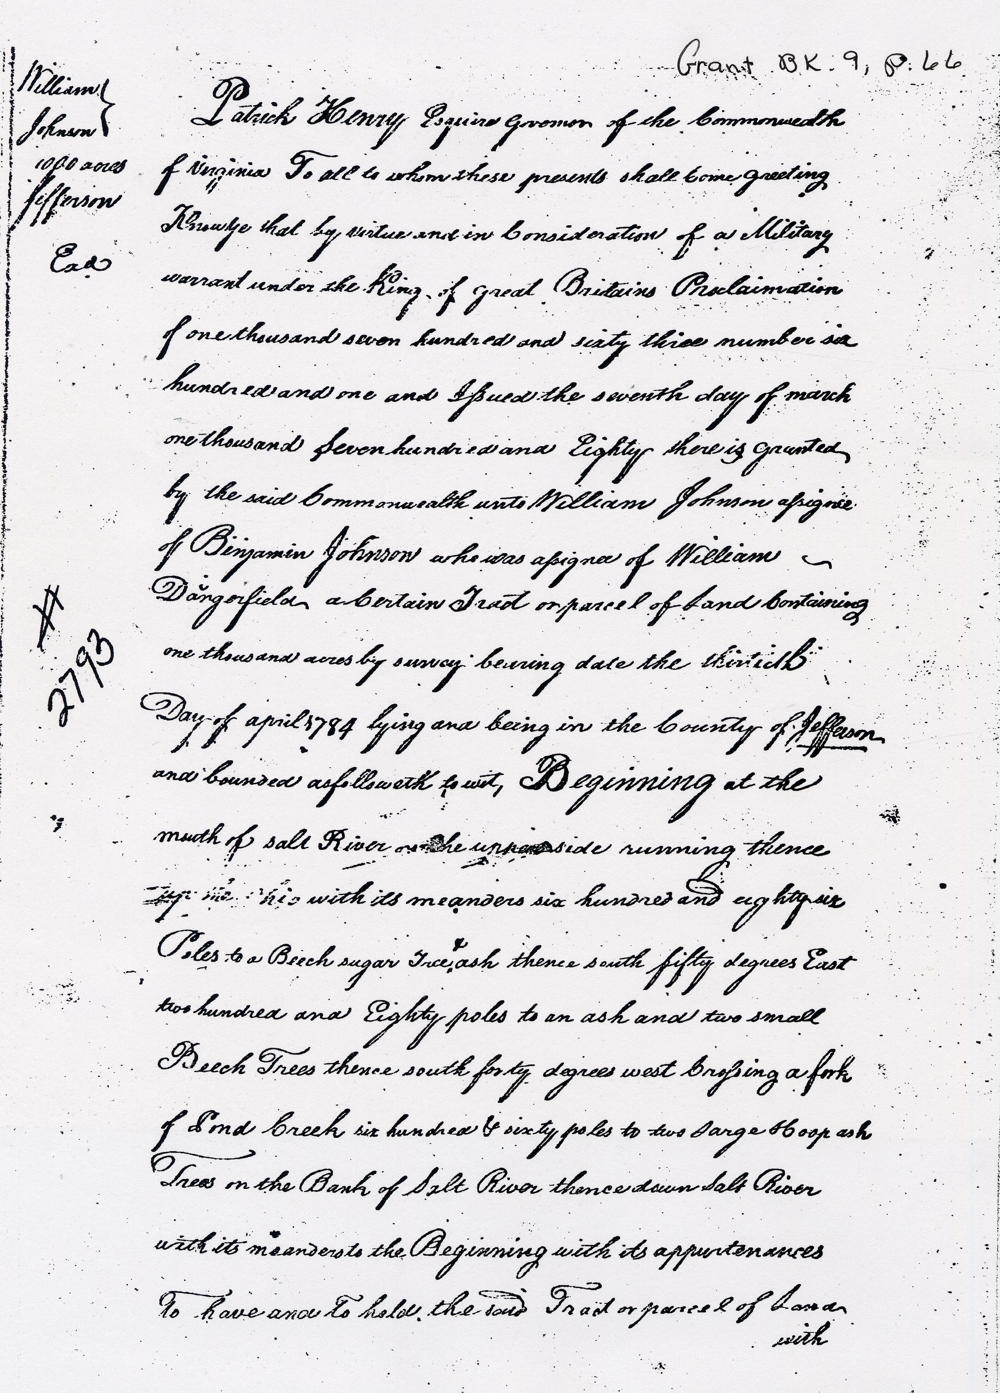 Grant BK. 9, P. 66
William
Johnson
1000 acres
Jefferson
Exd
# 2793
Patrick Henry Esquire Governor of the Commonwealth
of Virginia To all to whom these presents shall Come greeting
Knowye that by virtue and in Consideration of a Military
warrant under the King of great Britains Proclaimation
of one thousand seven hundred and sixty three number six
hundred and one and Issued the seventh day of march
one thousand Seven hundred and Eighty there is granted
by the said Commonwealth unto William Johnson assignee
of Binjamin Johnson who was assignee of William
Dangerfield a Certain Tract or parcel of Land Containing
one thousand acres by survey bearing date the thirtieth
Day of april 1784 lying and being in the County of Jefferson
and bounded as followeth to wit, Beginning at the
mouth of salt River on the upper side running thence
up the with its meanders six hundred and eighty six
Poles to a Beech sugar Tree & ash thence south fifty degrees East
two hundred and Eighty poles to an ash and two small
Beech Trees thence south forty degrees west Crossing a fork
of Pond Creek six hundred & sixty poles to two Large Hoop ash
Trees on the Bank of Salt River thence down Salt River
with its meanders to the Beginning with its appurtenances
To have and To hold the said Tract or parcel of Land
with